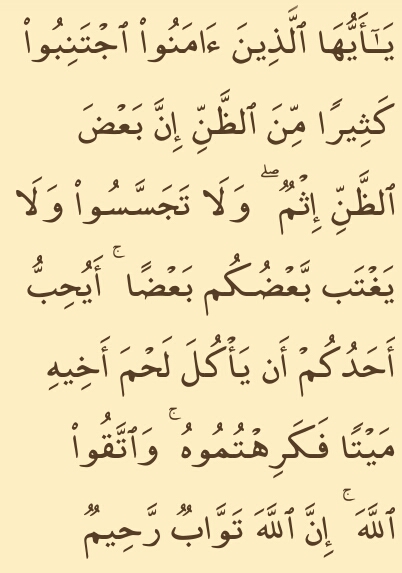 يَـٰٓأَيُّهَا ٱلَّذِينَ ءَامَنُوا۟ ٱجْتَنِبُوا۟
كَثِيرًا مِّنَ ٱلظَّنِّ إِنَّ بَعْضَ
ٱلظَّنِّ إِثْمٌ ۖ وَلَا تَجَسَّسُوا۟ وَلَا
يَغْتَب بَّعْضُكُم بَعْضًا ۚ أَيُحِبُّ
أَحَدُكُمْ أَن يَأْكُلَ لَحْمَ أَخِيهِ
مَيْتًا فَكَرِهْتُمُوهُ ۚ وَٱتَّقُوا۟
ٱللَّهَ ۚ إِنَّ ٱللَّهَ تَوَّابٌ رَّحِيمٌ